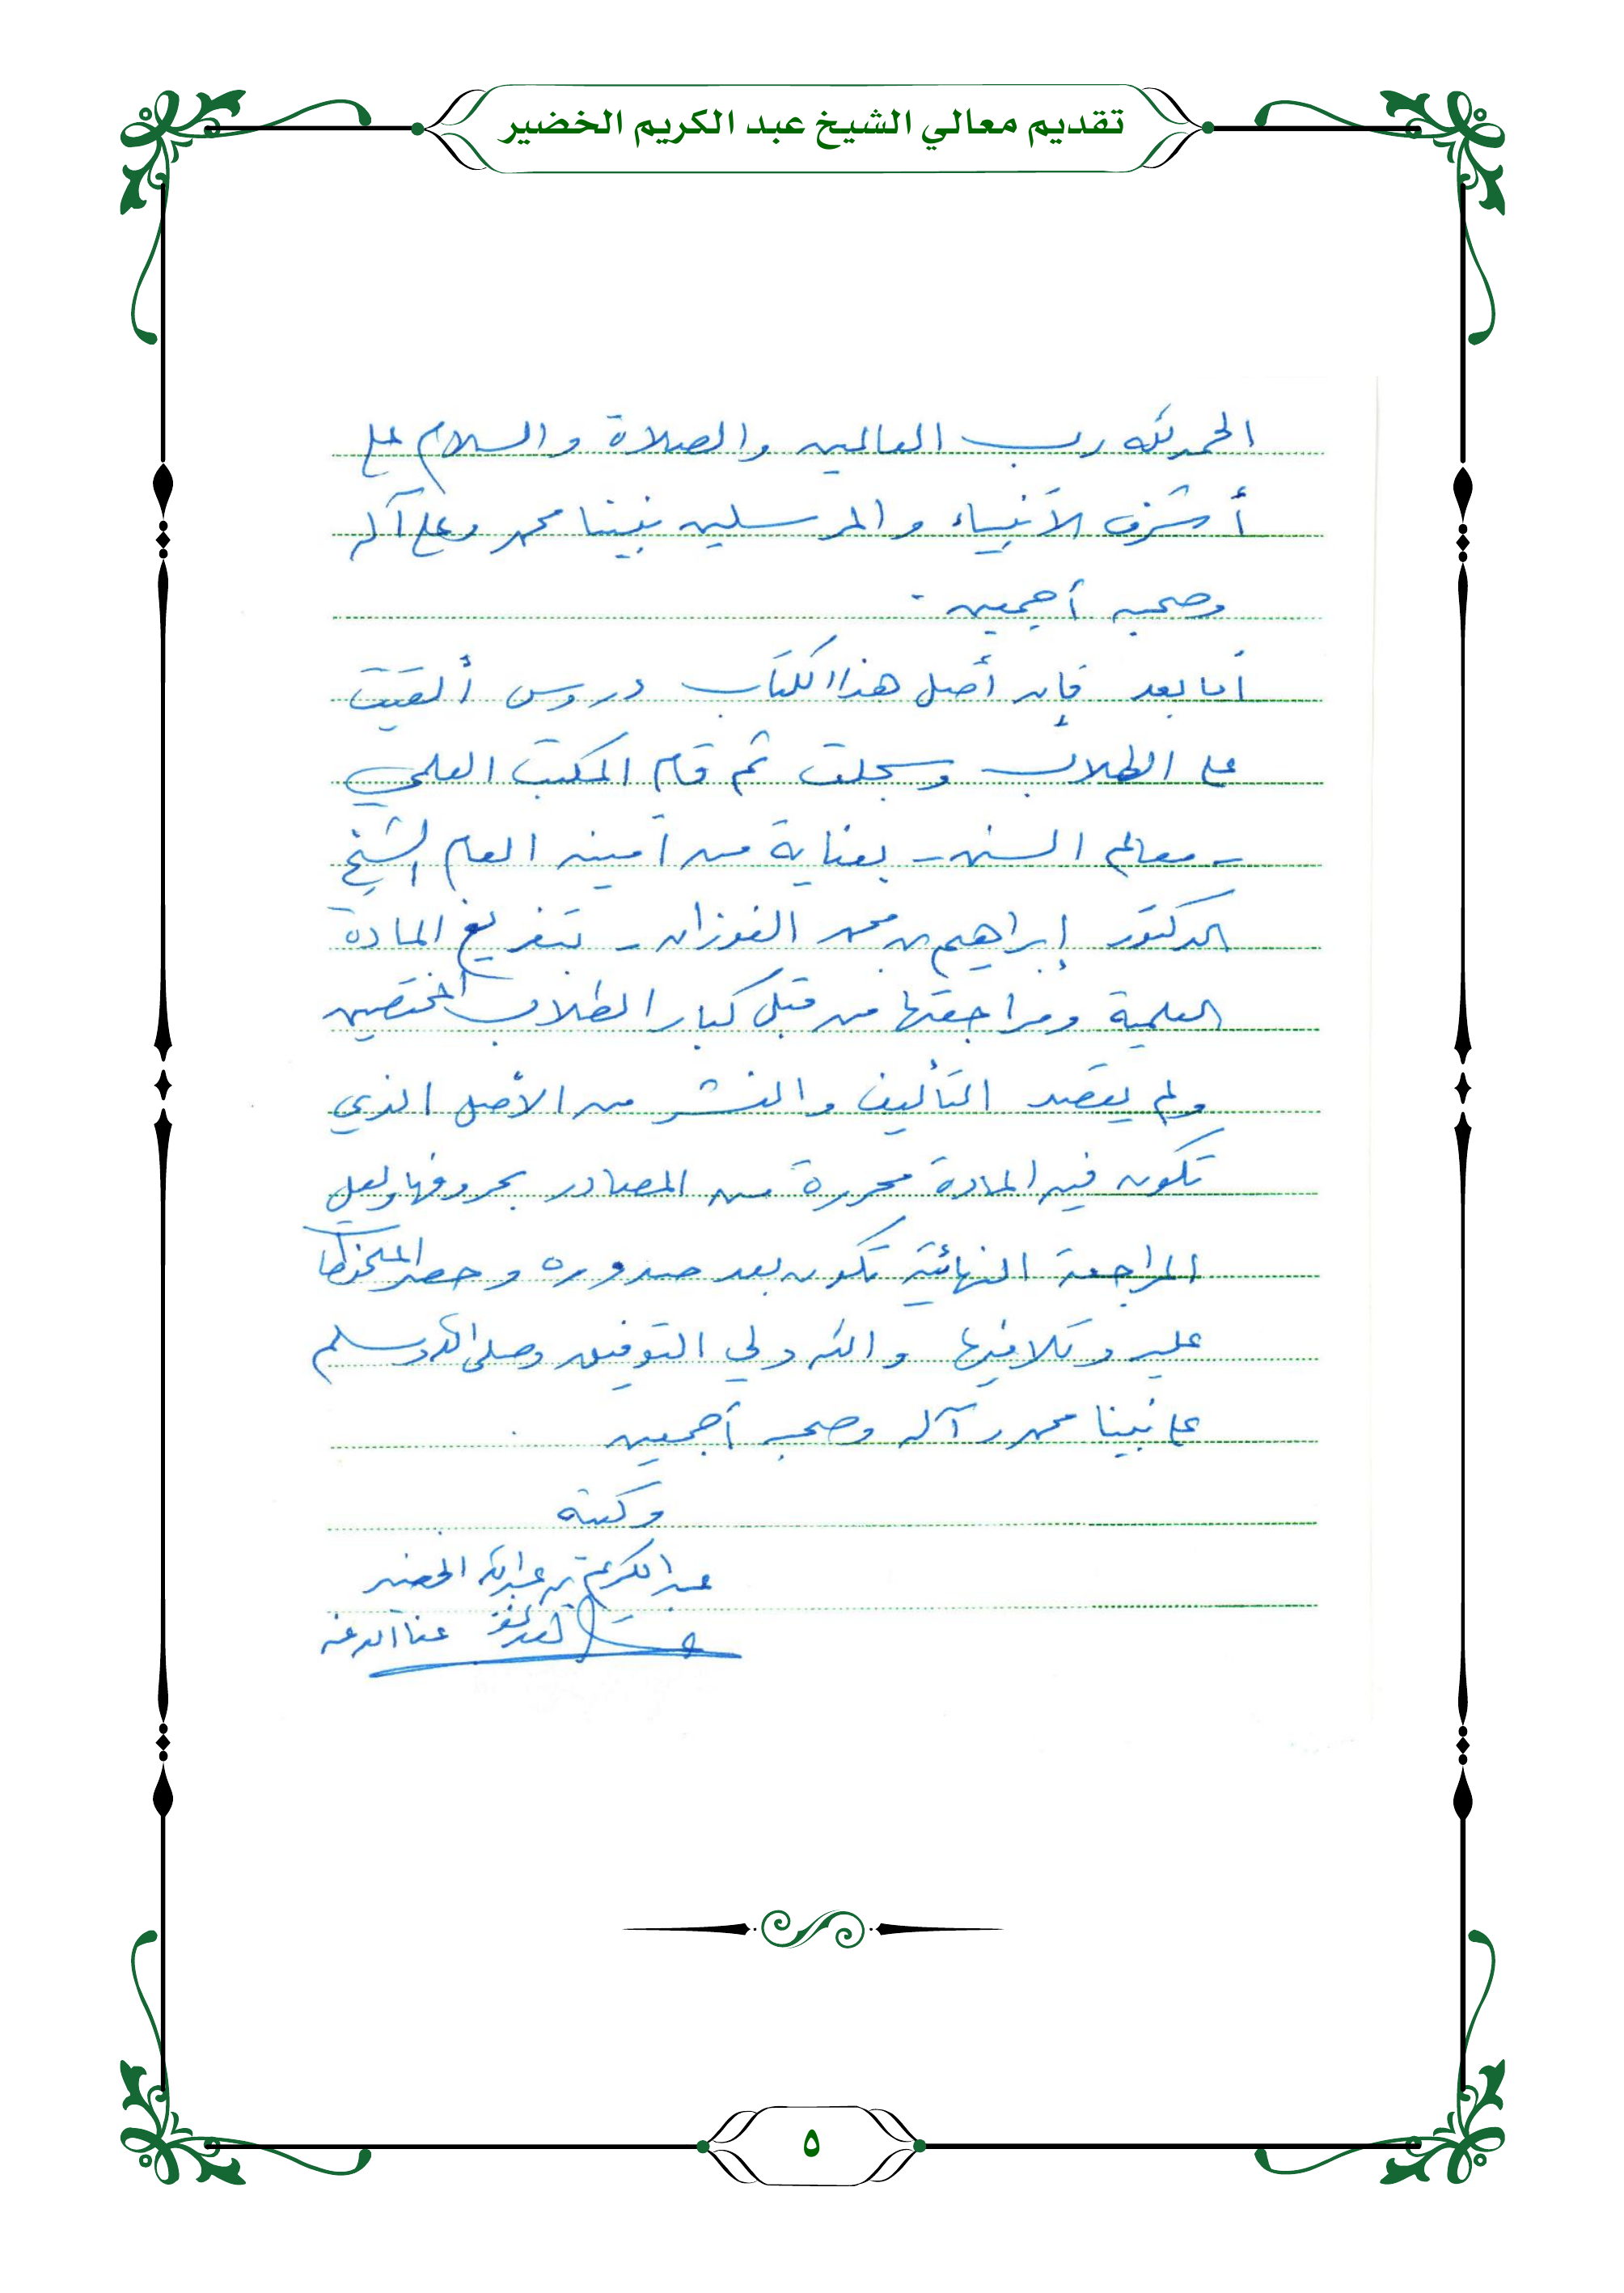 تقديم معالي الشيخ عبد الكريم الخضير
الحمد لله رب العالمين والصلاة والسلام على
أشرف الأنبياء والمرسلين نبينا محمد وعلى آله
وصحبه أجمعين .
أما بعد فإن أصل هذا الكتاب دروس ألقيت
على الطلاب وسجلت ثم قام المكتب العلمي
- معالم السنن - بعناية من أمينه العام الشيخ
الدكتور إبراهيم بن محمد الفوزان - بتفريغ المادة
العلمية ومراجعتها من قبل كبار الطلاب المختصين
ولم يقصد التأليف والنشر من الأصل الذي
تكون فيه المادة محررة من المصادر بحروفها ولعل
المراجعة النهائية تكون بعد صدوره وحصر
عليه وتلافيها والله ولي التوفيق وصلى الله وسلم
على نبينا محمد وآله وصحبه أجمعين
وكتبه
عبد الكريم بن عبد الله الخضير
عفا الله عنه
٥